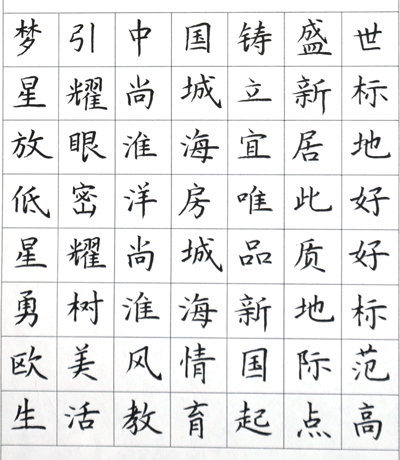 梦引中国铸盛世
星耀尚城立新标
放眼淮海宜居地
低密洋房唯此好
星耀尚城品质好
勇树淮海新地标
欧美风情国际范
生活教育起点高